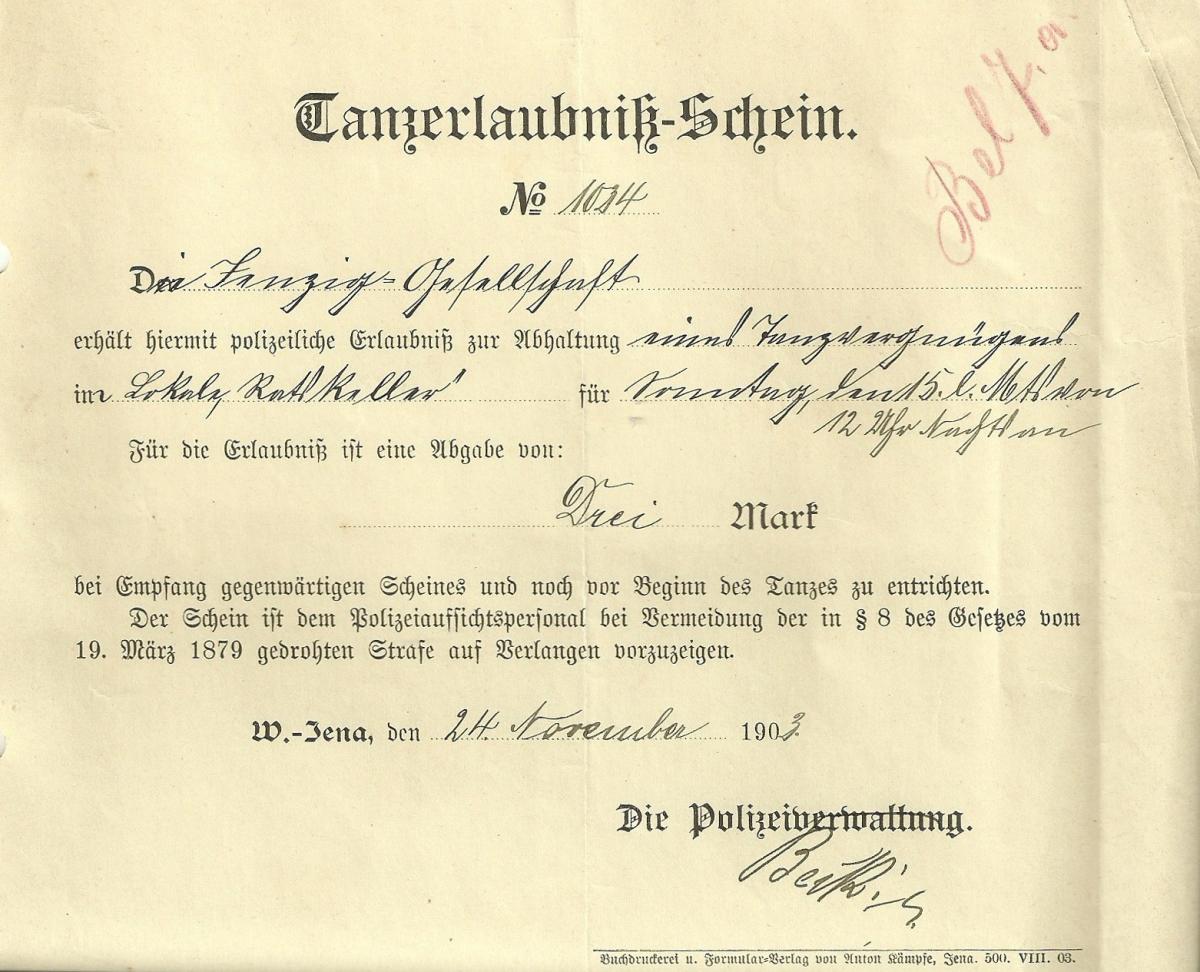 Bel 7. a.
Tanzerlaubniß-Schein.
№ 1034
Die Fenzig-Gesellschaft
erhält hiermit polizeiliche Erlaubniß zur Abhaltung eines Tanzvergnügens
im Lokale „Ratskeller" für Sonntag, den 15. d. Mts von
12 Uhr Nachts an
Für die Erlaubniß ist eine Abgabe von:
Drei Mark
bei Empfang gegenwärtigen Scheines und noch vor Beginn des Tanzes zu entrichten.
Der Schein ist dem Polizeiaufsichtspersonal bei Vermeidung der in § 8 des Gesetzes vom
19. März 1879 gedrohten Strafe auf Verlangen vorzuzeigen.
W.-Jena, den 24. November 1903.
Die Polizeiverwaltung.
Buchdruckerei u. Formular-Verlag von Anton Kämpfe, Jena. 500. VIII. 03.